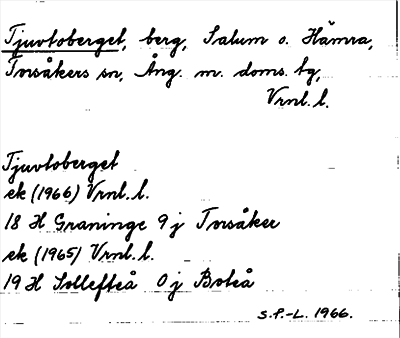 Tjuvtoberget, berg, Salum o. Hämra,
Torsåkers sn, Ång. m. doms. tg,
Vrnl. l.
Tjuvtoberget
ek (1966) Vrnl. l.
18 H Graninge 9 j Torsåker
ek (1965) Vrnl. l.
19 H Sollefteå 0 j Boteå
S.P.-L. 1966.